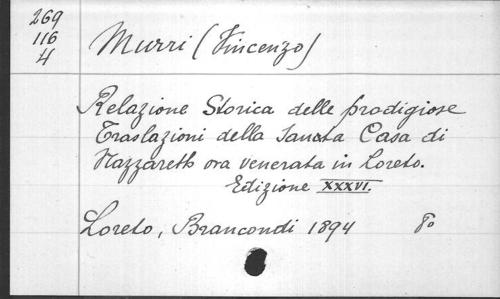 269
116
4
Murri (Vincenzo)
Relazione Storica delle prodigiose
Traslazioni della Sancta Casa di
Nazzareth ora venerata in Loreto.
Edizione XXXVI.
Loreto, Brancondi 1894 8o